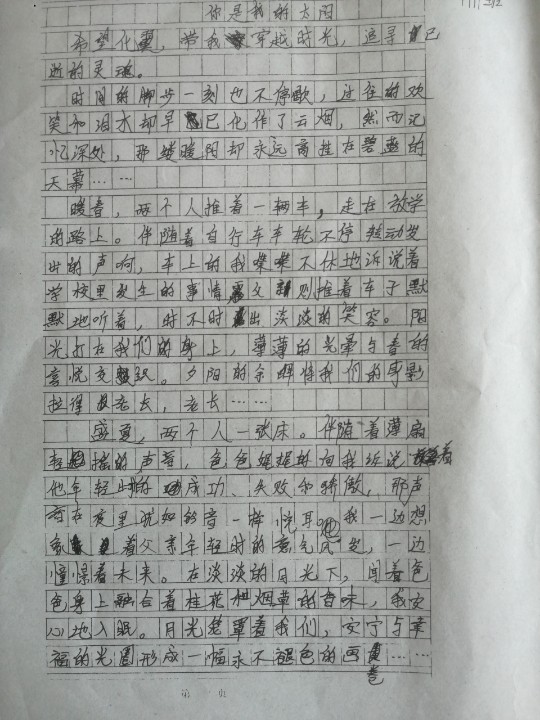 你是我的太阳
希望化翼，带我穿越时光，追寻自己
逝的灵魂。
时间的脚步一刻也不停歇，过往的欢
笑和泪水却早已化作了云烟，然而记
忆深处，那缕暖阳却永远高挂在碧蓝的
天幕……
暖春，两个人推着一辆车，走在放学
的路上。伴随着自行车车轮不停转动发
出的声响，车上的我喋喋不休地诉说着
学校里发生的事情父亲则推着车子默
默地听着，时不时露出淡淡的笑容。阳
光打在我们的身上，薄薄的光晕与春的
喜悦交织。夕阳的余晖将我们的身影
拉得老长，老长……
盛夏，两个人一张床。伴随着薄扇
轻摇的声音，爸爸娓娓的向我诉说着
他年轻时的成功、失败和骄傲，那声
音在夜里犹如铃音一样悦耳呢我一边想
象着父亲年轻时的意气风发，一边
憧憬着未来。在淡淡的月光下，闻着爸
爸身上融合着桂花和烟草的香味，我安
心地入眠。月光笼罩着我们，安宁与幸
福的光圈形成一幅永不褪色的画卷……
第 页